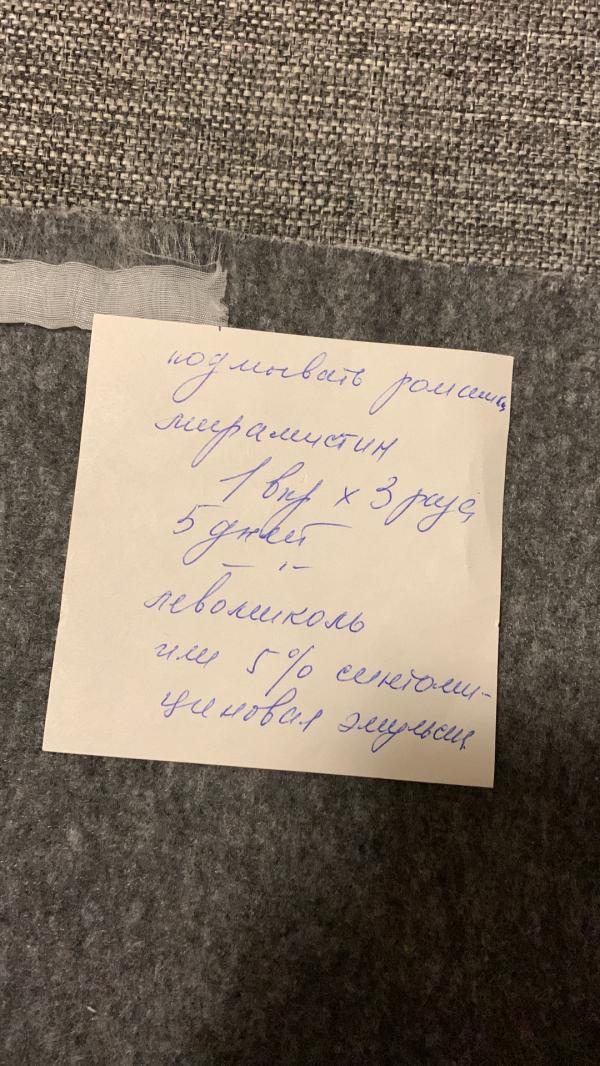 подмывать ромашк
мирамистин
1 впр x 3 раза
5 дней
— " —
левомиколь
или 5% синтоми-
циновая эмульси